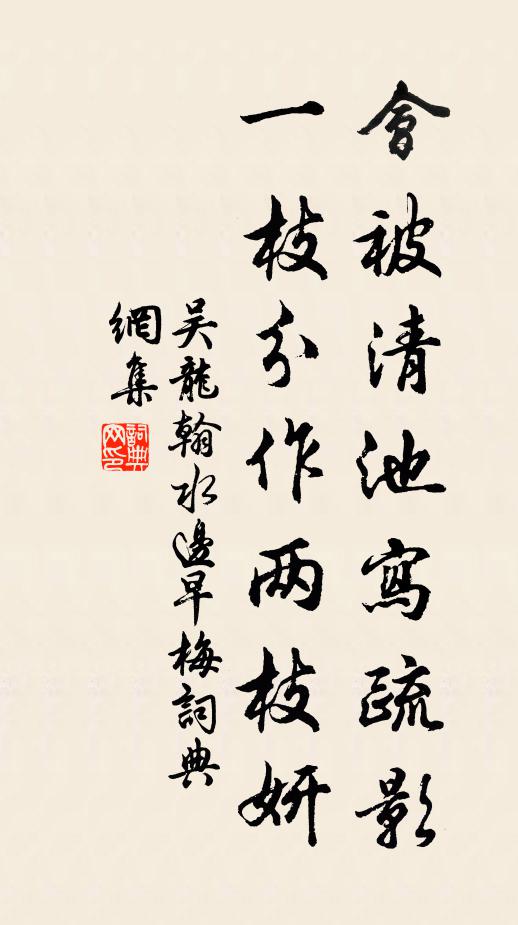 會被清池寫疏影
一枝分作兩枝妍
吴龍翰水邊早梅詞典
網集
詞典網印